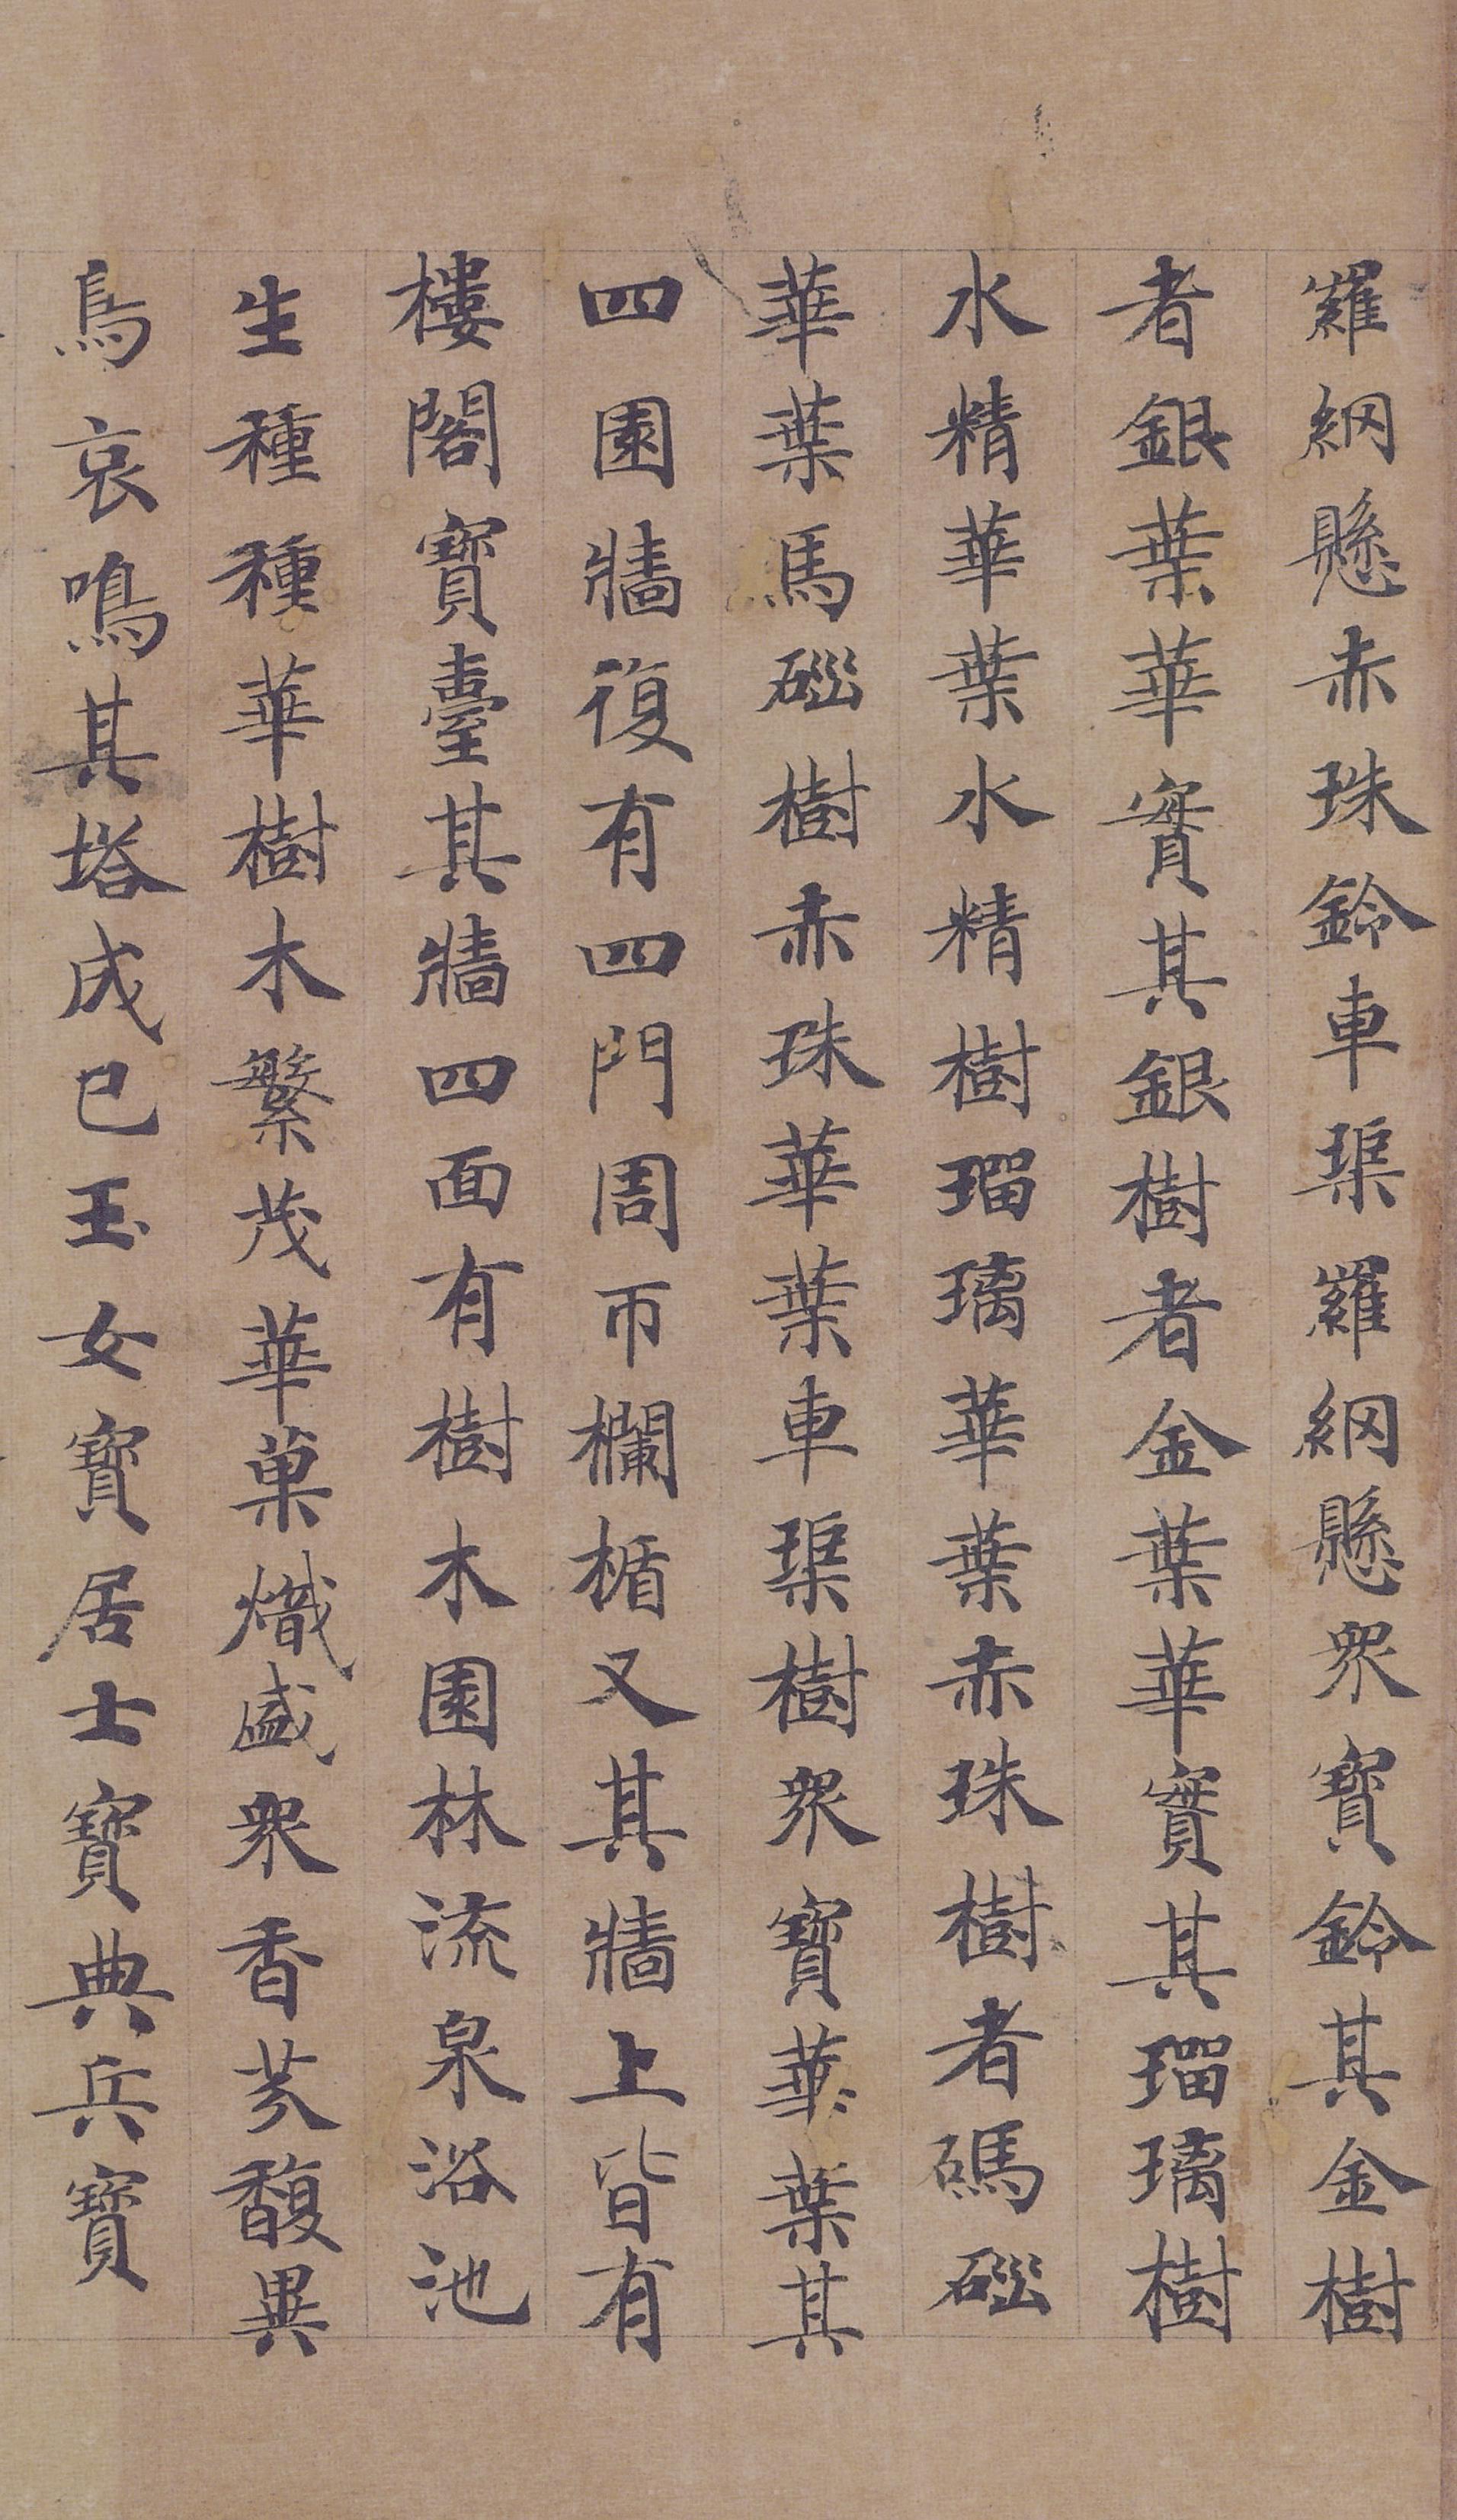 羅網懸赤珠鈴車渠羅網懸眾寶鈴其金樹
者銀葉華實其銀樹者金葉華實其瑠璃樹
水精華葉水精樹瑠璃華葉赤珠樹者碼碯
華葉馬碯樹赤珠華葉車渠樹眾寶華葉其
四園牆復有四門周帀欄楯又其牆上皆有
樓閣寶臺其牆四面有樹木園林流泉浴池
生種種華樹木繁茂華菓熾盛眾香芬馥異
鳥哀鳴其塔成已玉女寶居士寶典兵寶